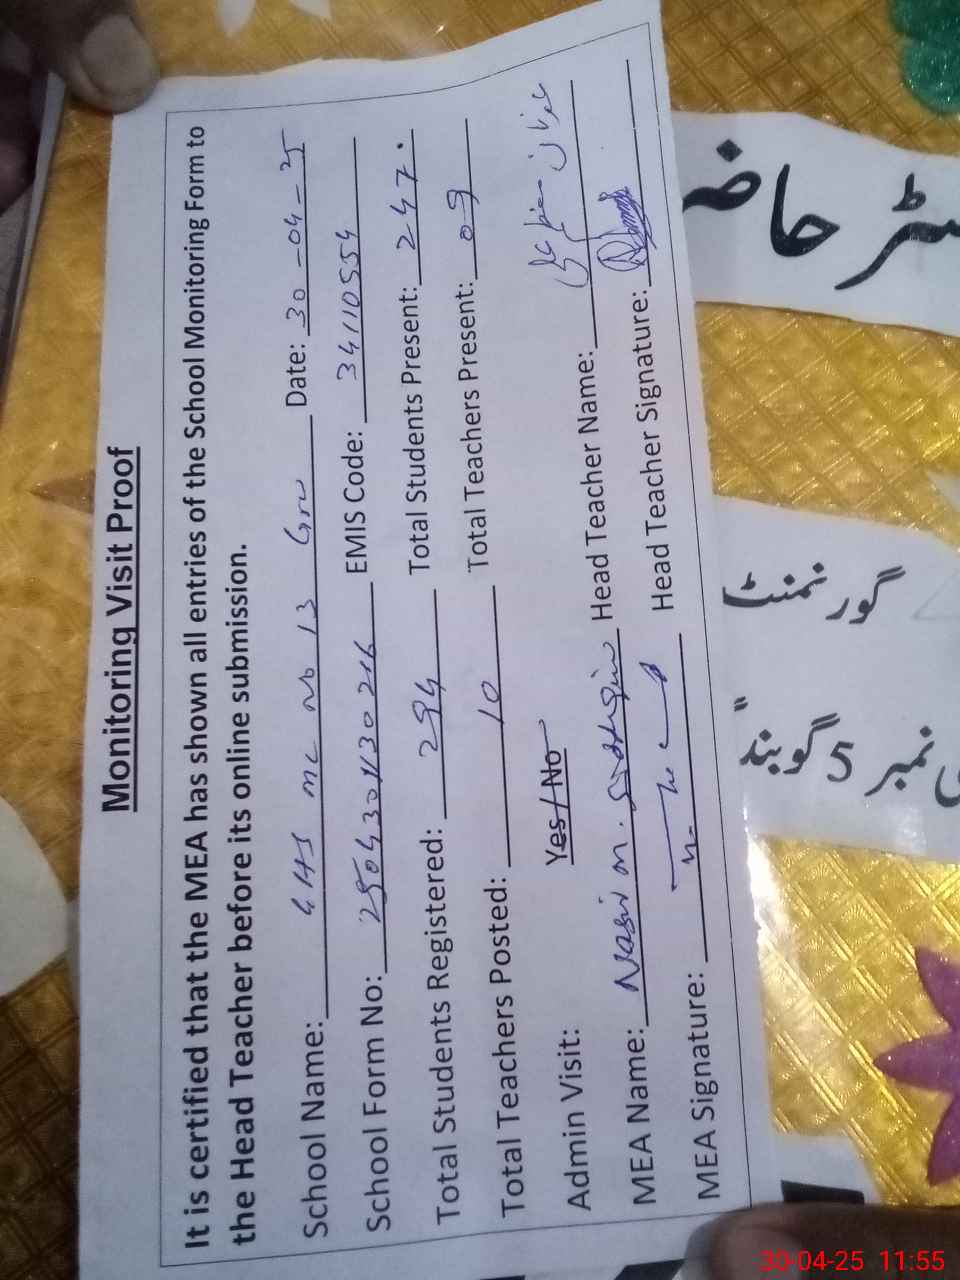 Monitoring Visit Proof
It is certified that the MEA has shown all entries of the School Monitoring Form to
the Head Teacher before its online submission.
School Name: GHS mc no 13 Date: 30-04-25
School Form No: EMIS Code: 34110554
Total Students Registered: 294 Total Students Present: 247.
Total Teachers Posted: 10 Total Teachers Present: 09
Admin Visit: Yes/No Head Teacher Name:
MEA Name: Nasir m. Siddiqui Head Teacher Signature:
MEA Signature:
گورنمنٹ
نمبر 5 گوبند
30-04-25 11:55